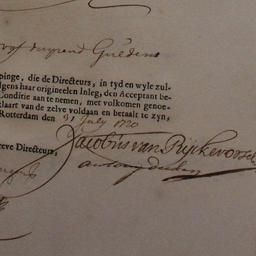 duysend Guldens
pinge, die de Directeurs, in tyd en wyle zul-
lgens haar origineelen Inleg, den Acceptant be-
Conditie aan te nemen, met volkomen genoe-
klaart van de zelve voldaan en betaalt te zyn,
Rotterdam den 31 July 1720
Jacobus van Rijckevorsel
reve Directeurs,